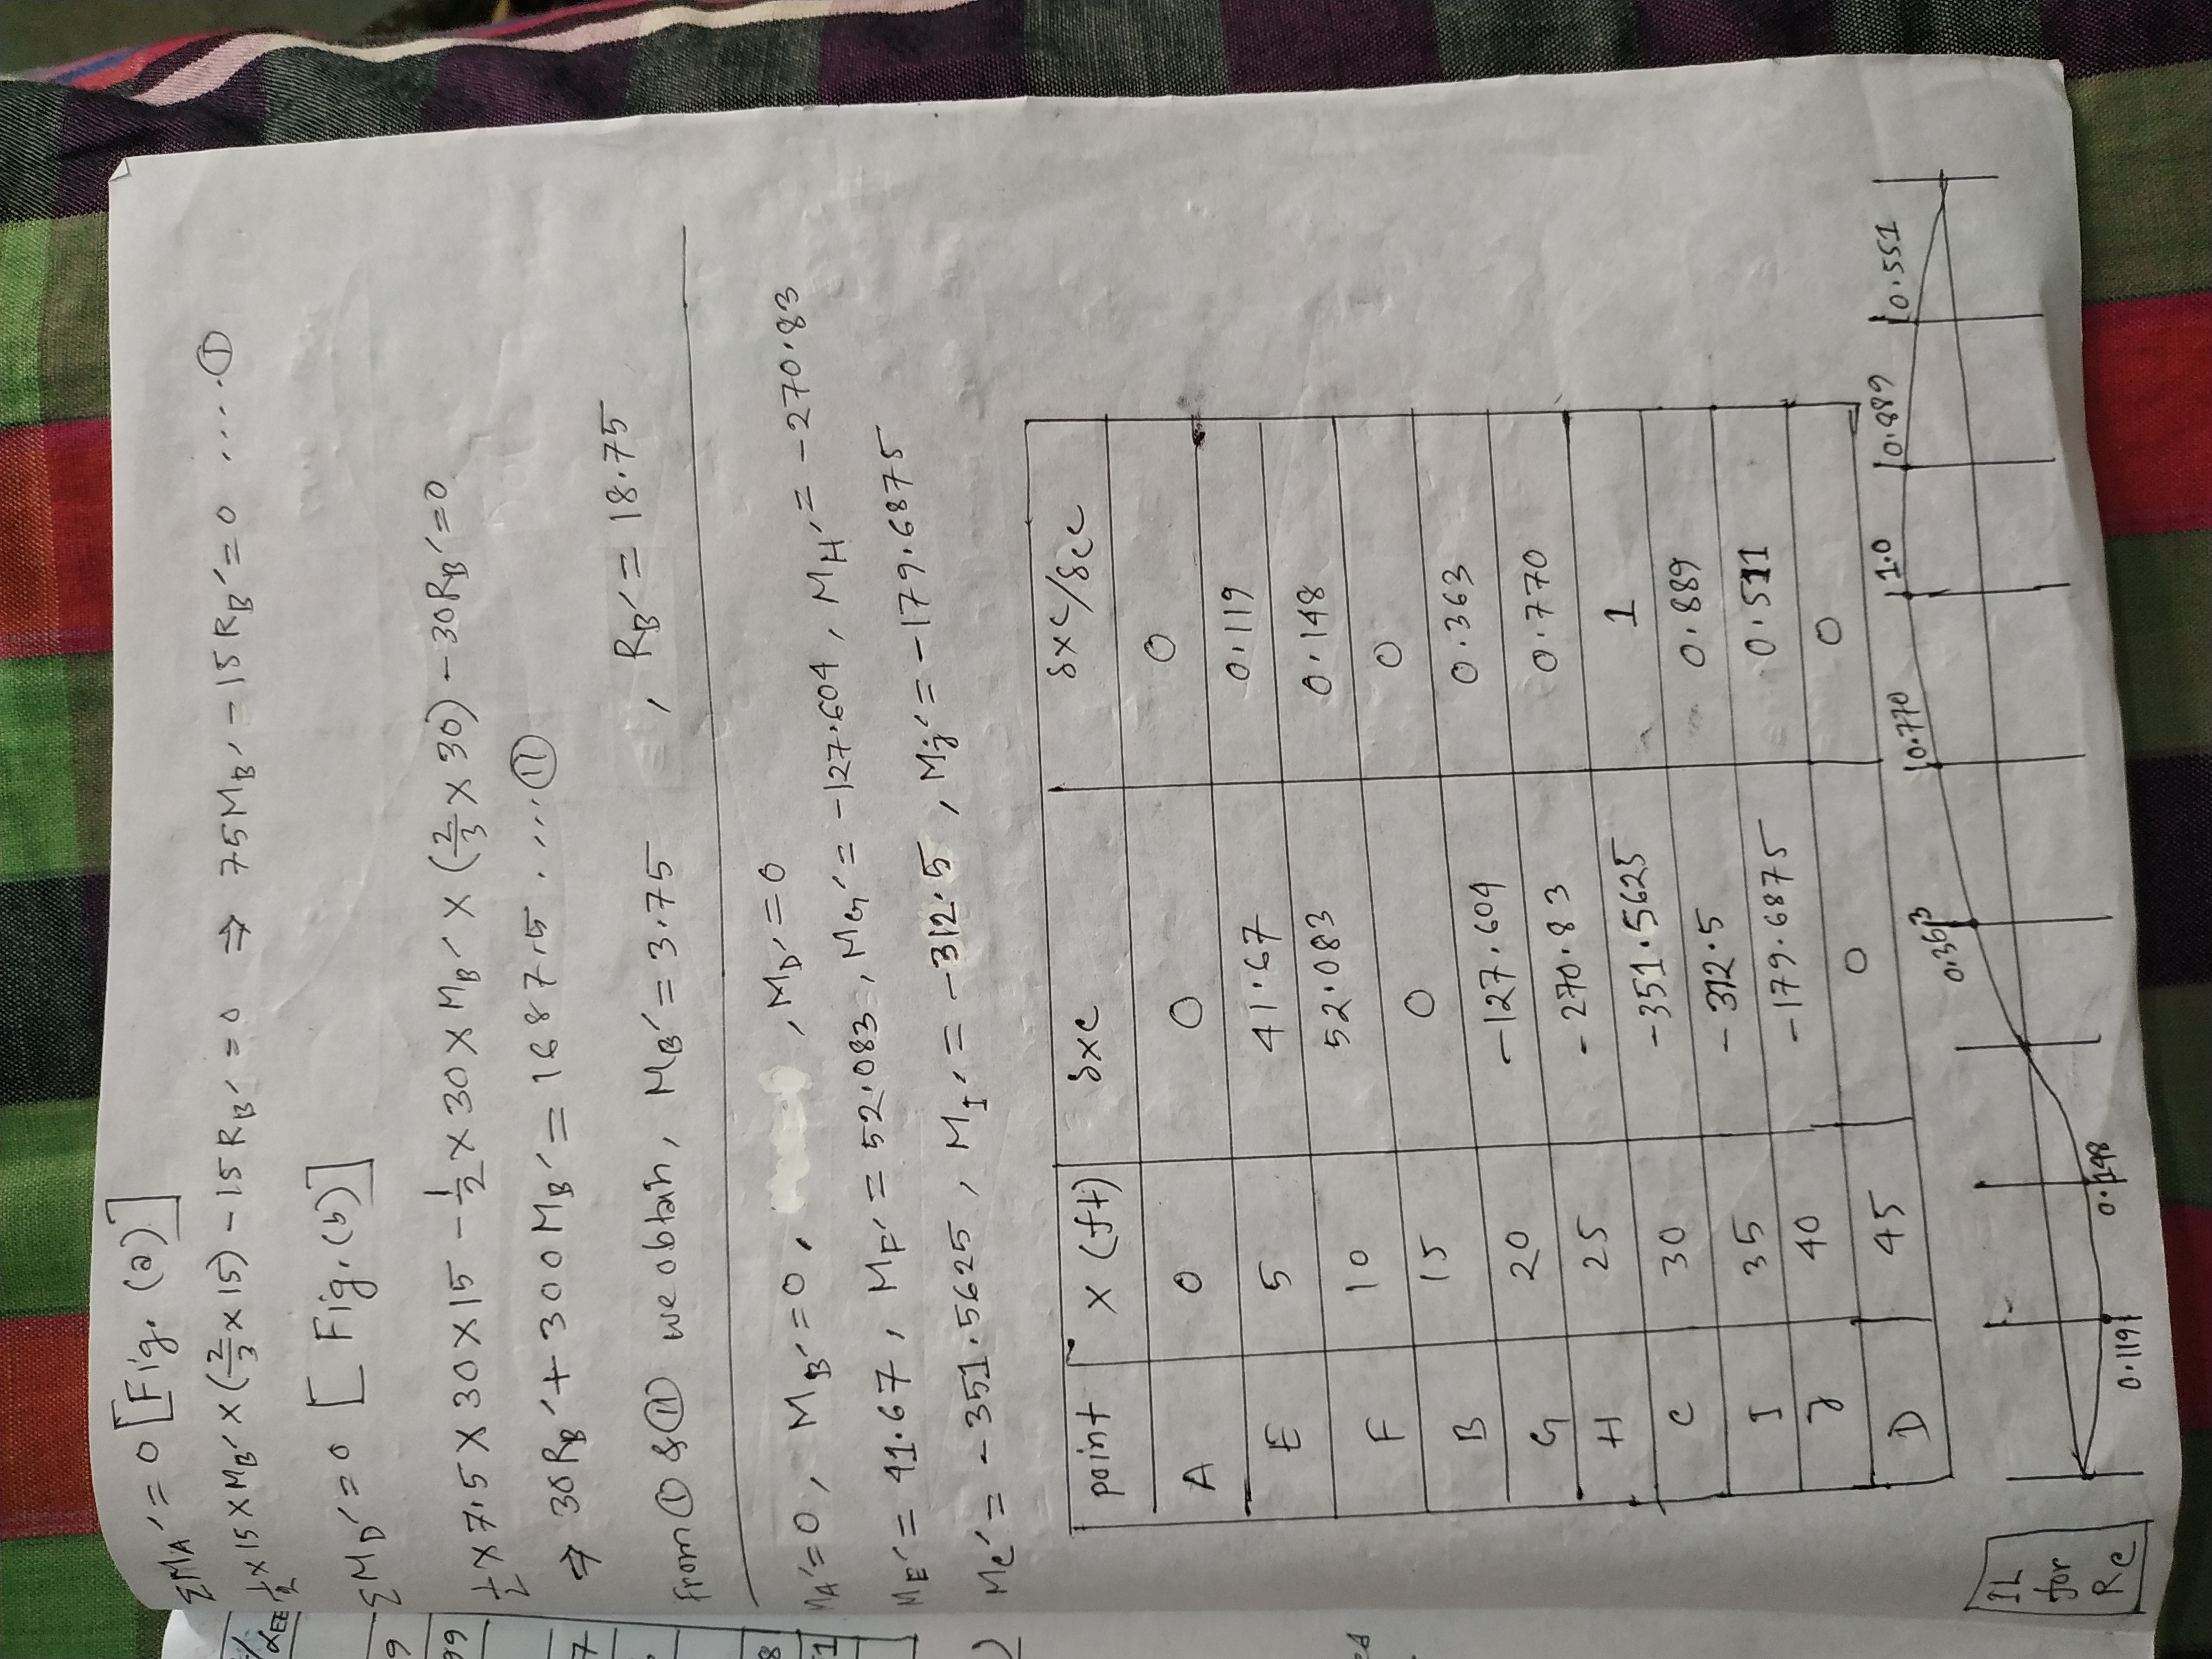 ΣMA′ = 0 [Fig. (a)]
½ × 15 × MB′ × (⅔ × 15) − 15 RB′ = 0 ⇒ 75 MB′ − 15 RB′ = 0 ..... ①
ΣMD′ = 0 [Fig. (b)]
½ × 7.5 × 30 × 15 − ½ × 30 × MB′ × (⅔ × 30) − 30RB′ = 0
⇒ 30RB′ + 300MB′ = 1687.5 ..... ⑪
From ① & ⑪ we obtain, MB′ = 3.75 , RB′ = 18.75
MA′ = 0, MB′ = 0, , MD′ = 0
ME′ = 41.67, MF′ = 52.083, MG′ = −127.604, MH′ = −270.83
MC′ = −351.5625, MI′ = −312.5, MJ′ = −179.6875
point X (ft) δxc δxc/δcc
A 0 0 0
E 5 41.67 0.119
F 10 52.083 0.148
B 15 0 0
G 20 −127.604 0.363
H 25 −270.83 0.770
C 30 −351.5625 1
I 35 −312.5 0.889
J 40 −179.6875 0.511
D 45 0 0
IL for RC
0.119 0.148 0.363 0.770 1.0 0.889 0.551